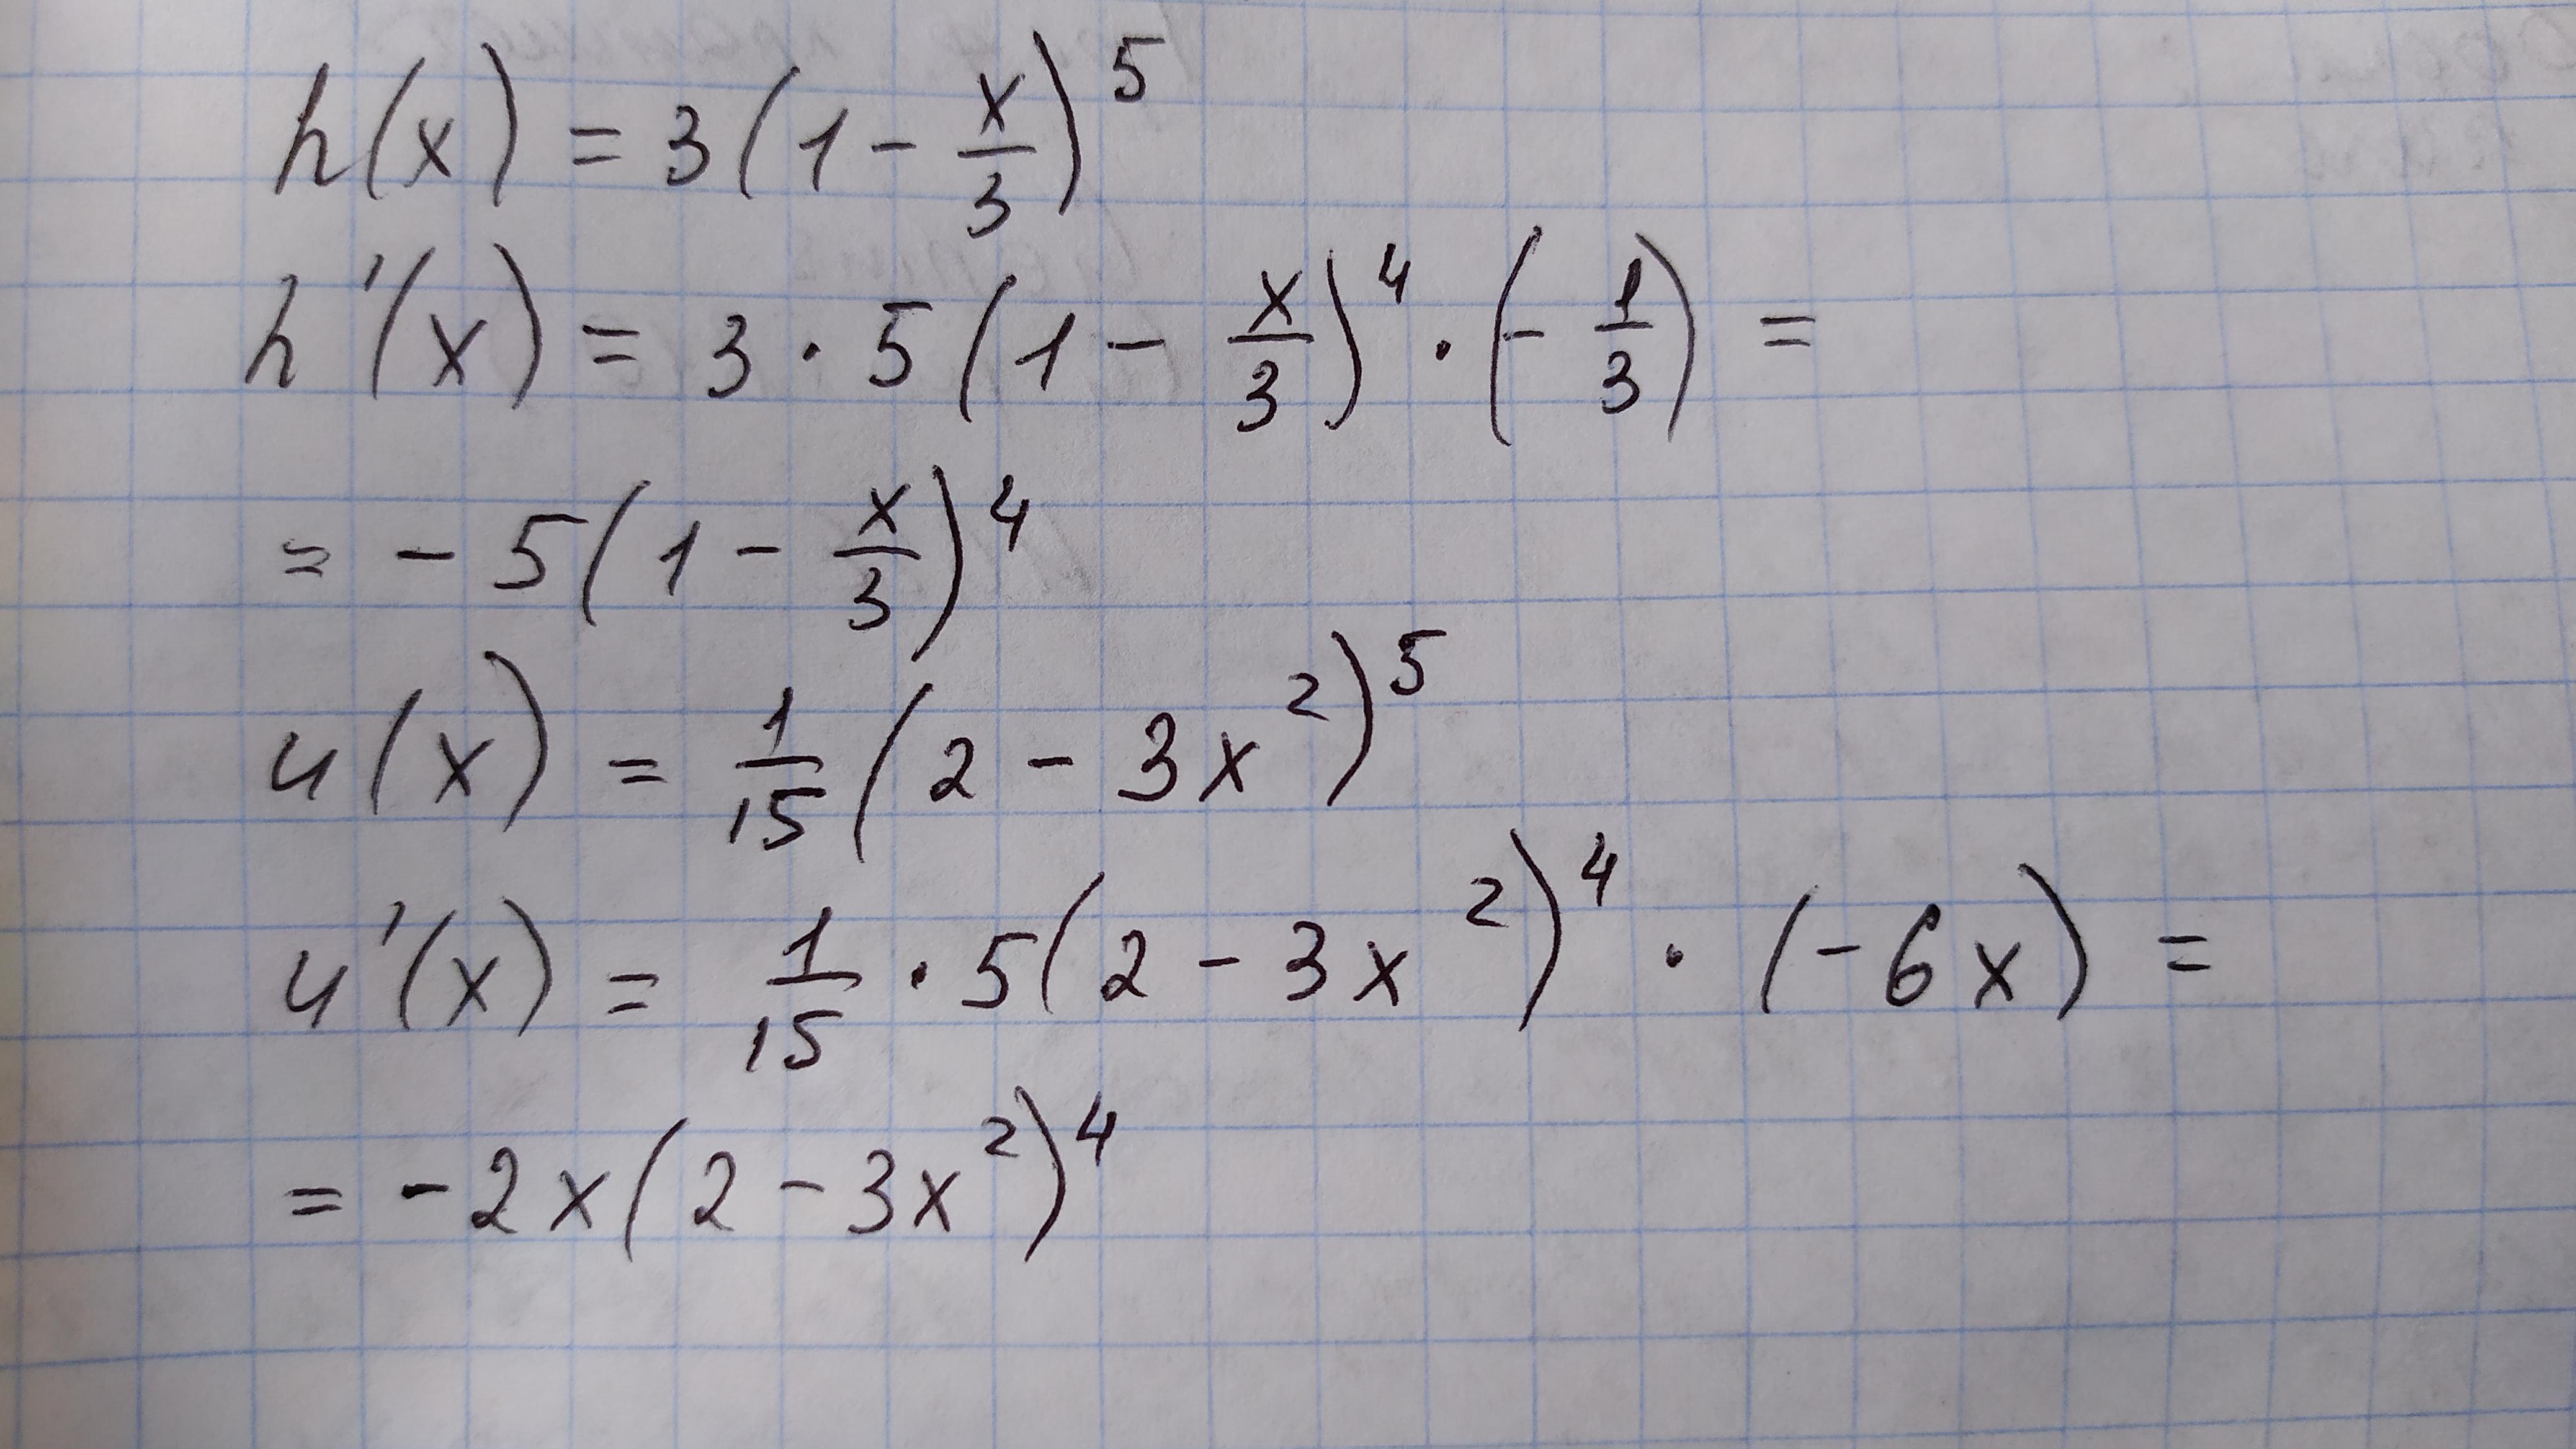 h(x) = 3(1 - x/3)^5
h'(x) = 3 · 5(1 - x/3)^4 · (- 1/3) =
= - 5(1 - x/3)^4
u(x) = 1/15 (2 - 3x^2)^5
u'(x) = 1/15 · 5(2 - 3x^2)^4 · (-6x) =
= -2x(2 - 3x^2)^4